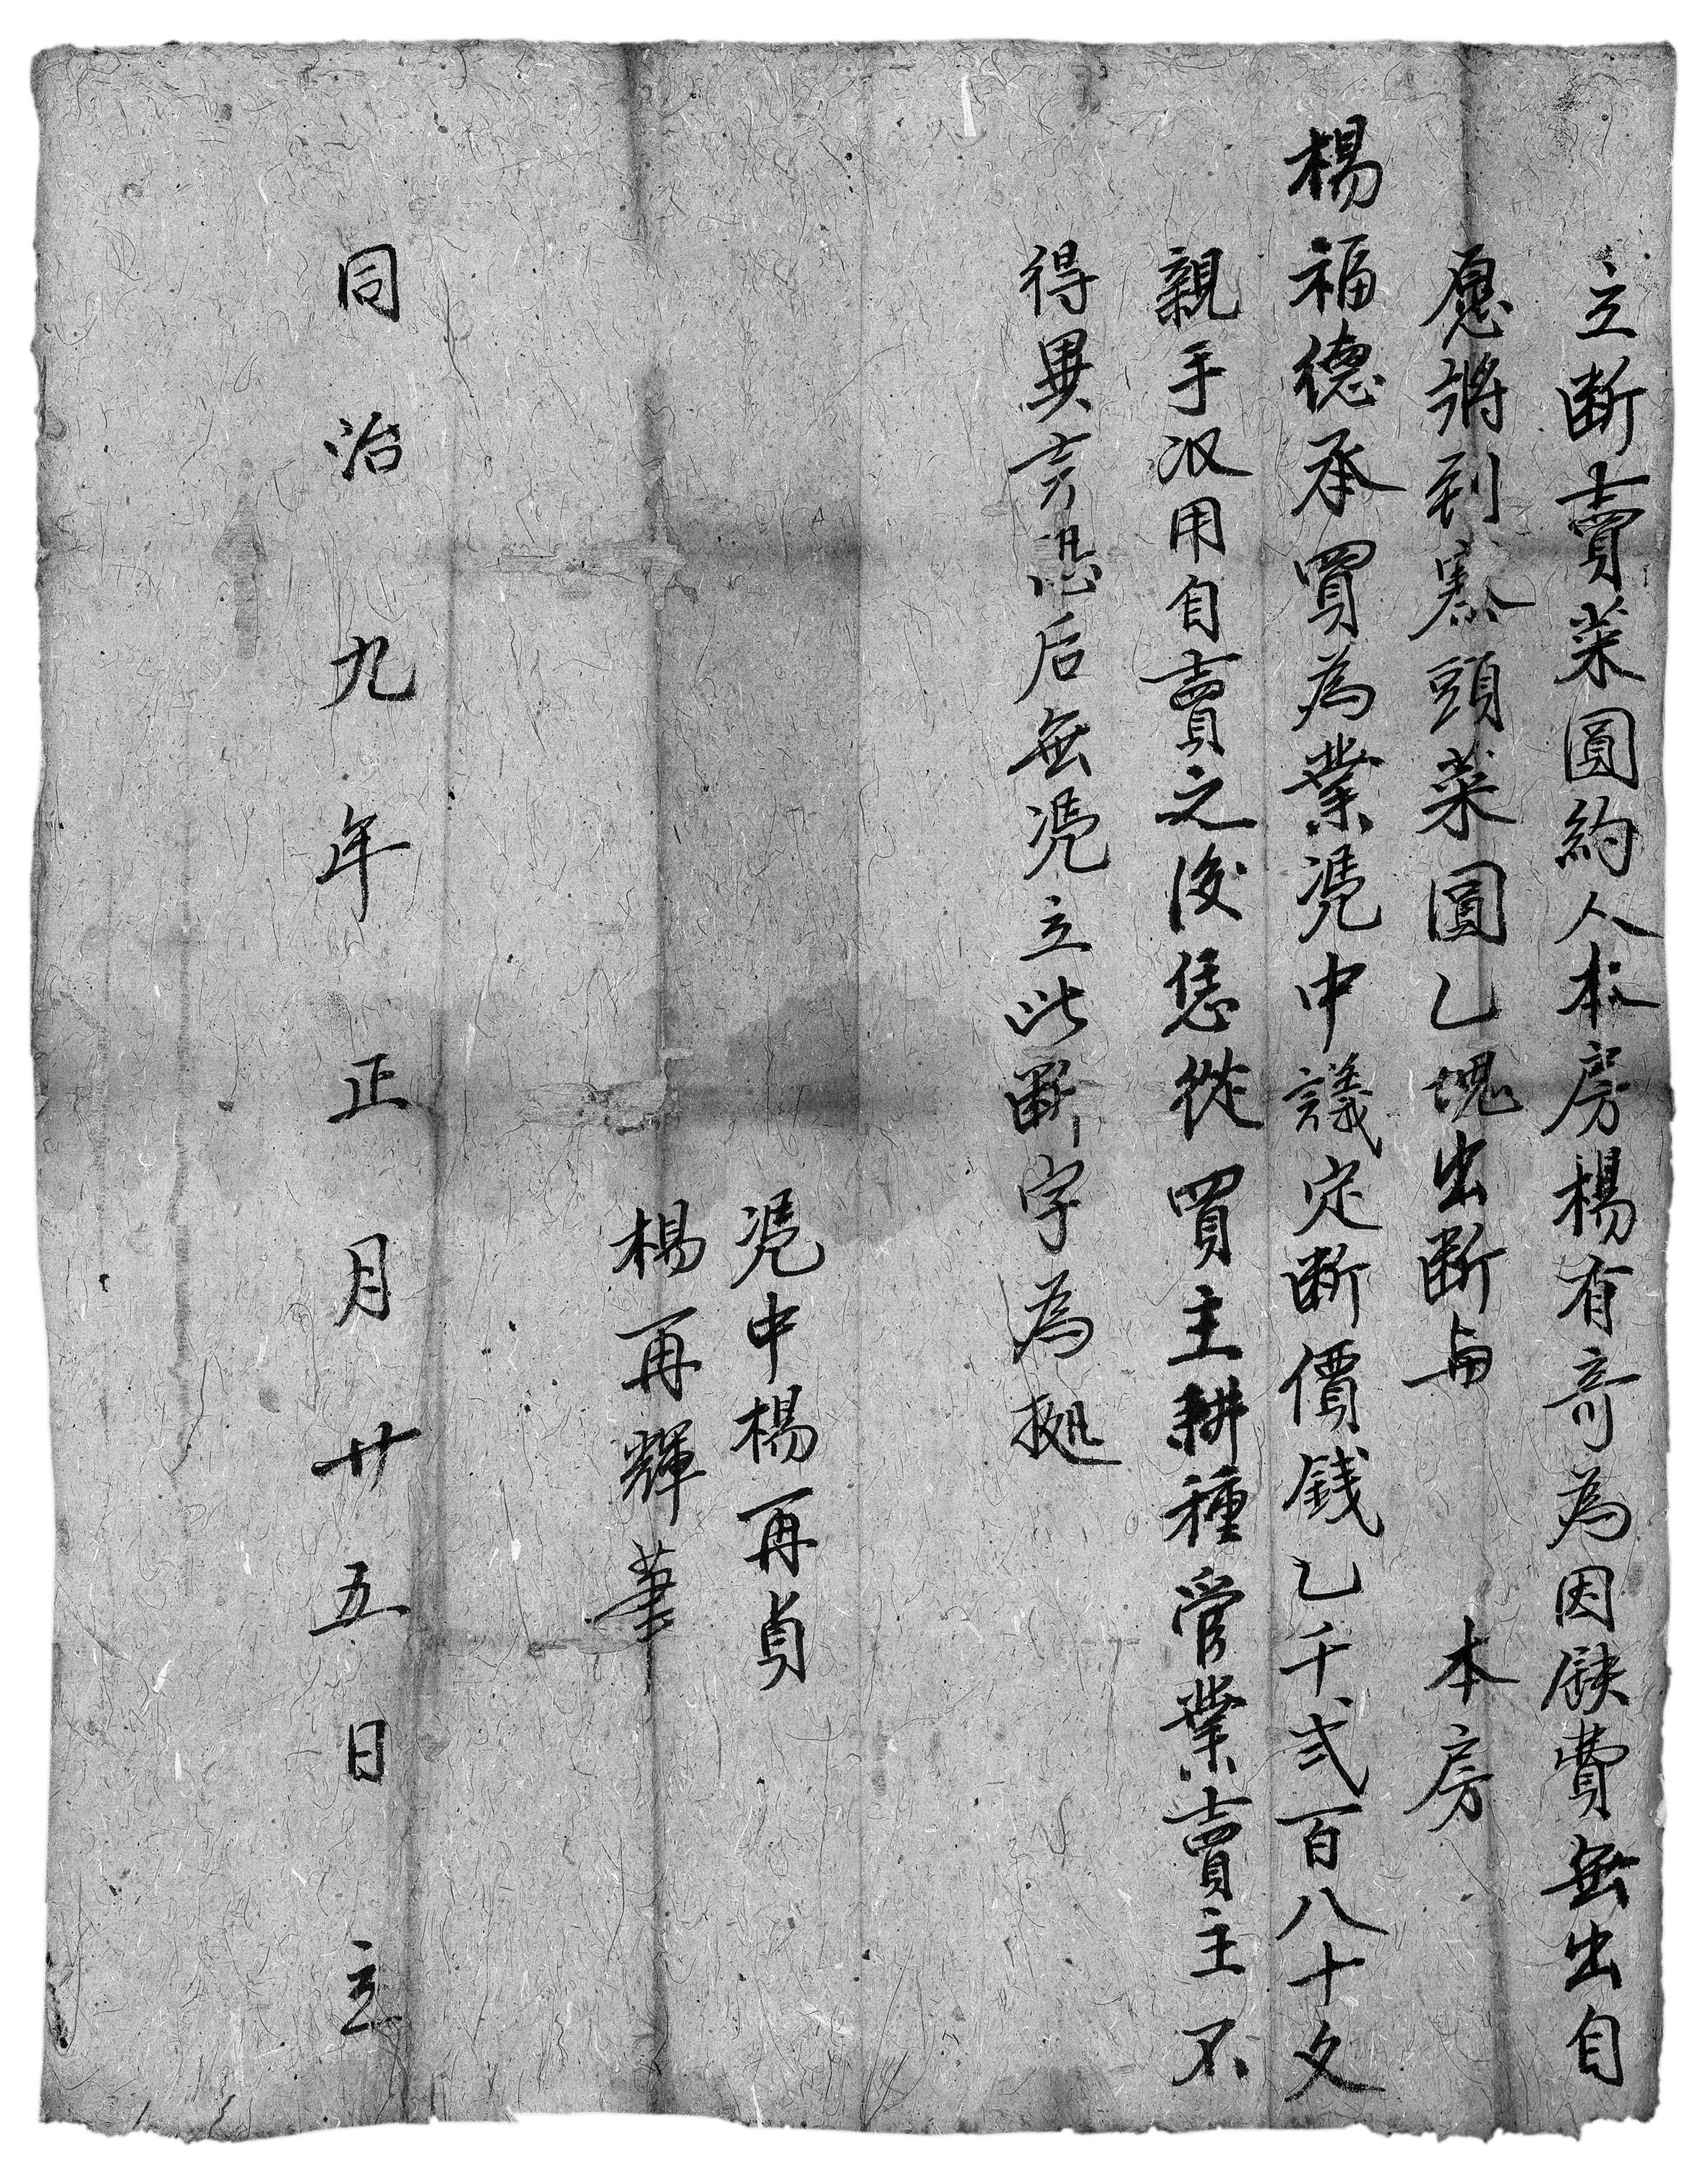 立断賣菜園約人本房楊有奇為因缺費無出自
愿將到寨頭菜園乙塊出断与　本房
楊福德承買為業憑中議定断價錢乙千弍百八十文
親手収用自賣之後恁從買主耕種管業賣主不
得異言恐后無憑立此斷字為拠
憑中楊再貞
楊再輝筆
同治九年正月廿五日立